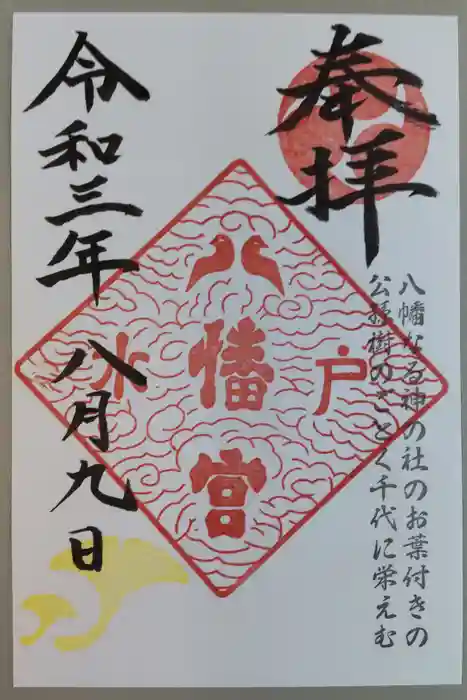 奉拝
八幡なる神の社のお葉付きの
公孫樹のごとく千代に栄えむ
八幡宮
水戸
令和三年
八月九日